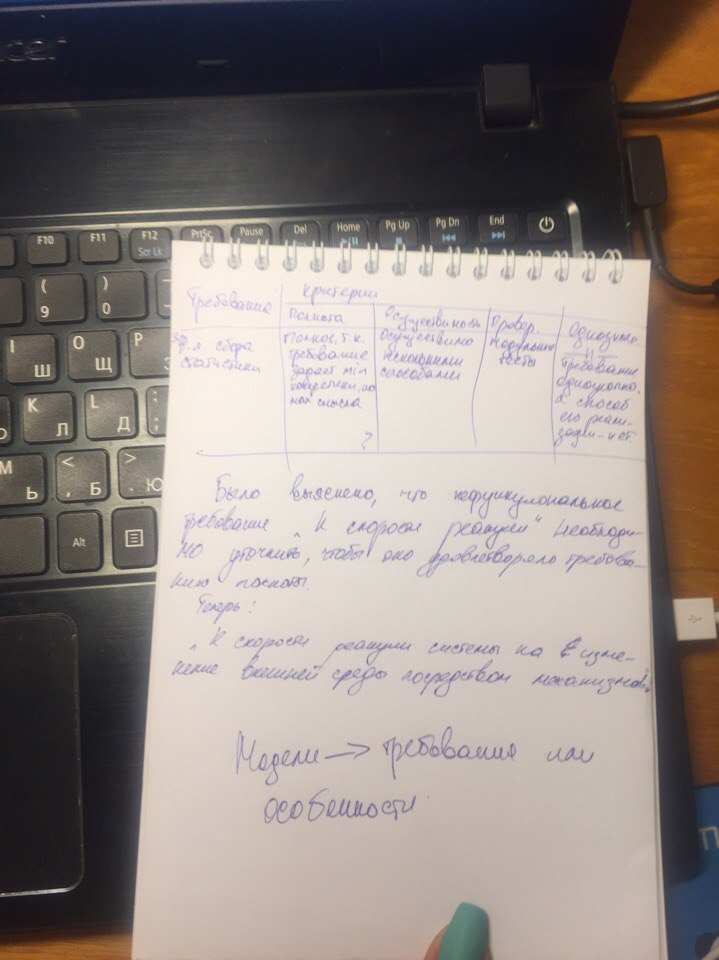 acer
F10 F11 F12 PrtSc Pause Del Home Pg Up Pg Dn End
Scr Lk Ins
( )
9 0
O P
Ш Щ
K L
Л Д
M < >
Ь , Б . Ю
Alt
Требования Критерии
Полнота Осуществимость Провер. Однозначн
ф-я сбора статистики
Полное, т.к. требование задает min
но max смысла
?
Осуществимо несколькими способами
модульные тесты
Требование однозначно, а способ его реализации - нет.
Было выяснено, что нефункциональное
требование „К скорости реакции" необходи-
мо уточнить, чтобы оно удовлетворяло требова-
нию полноты.
Теперь:
„К скорости реакции системы на изме-
нение внешней среды посредством механизмов"
Модели → требования или
особенности